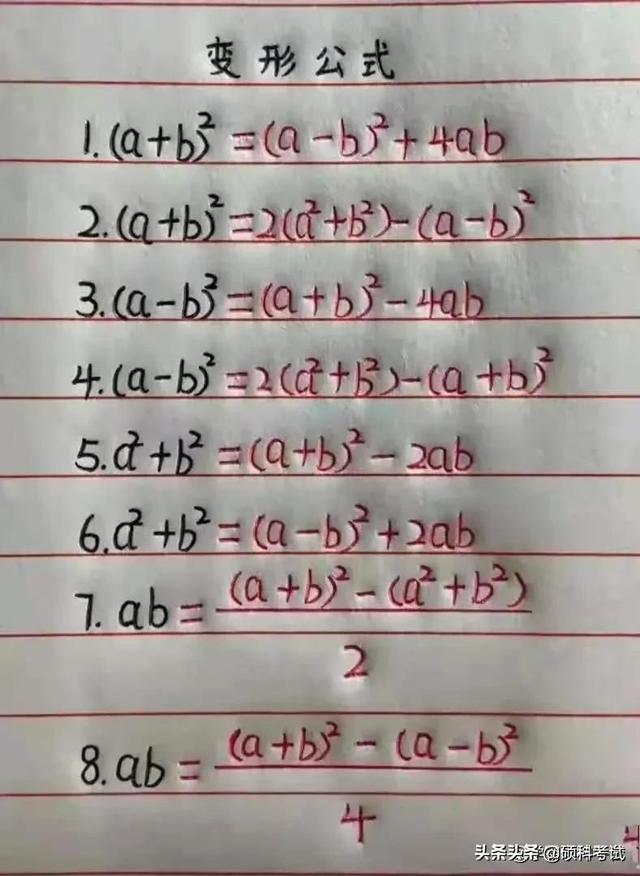 变形公式
1.(a+b)²=(a-b)²+4ab
2.(a+b)²=2(a²+b²)-(a-b)²
3.(a-b)²=(a+b)²-4ab
4.(a-b)²=2(a²+b²)-(a+b)²
5.a²+b²=(a+b)²-2ab
6.a²+b²=(a-b)²+2ab
7.ab=\frac{(a+b)²-(a²+b²)}{2}
8.ab=\frac{(a+b)²-(a-b)²}{4}
头条 @硕科考试